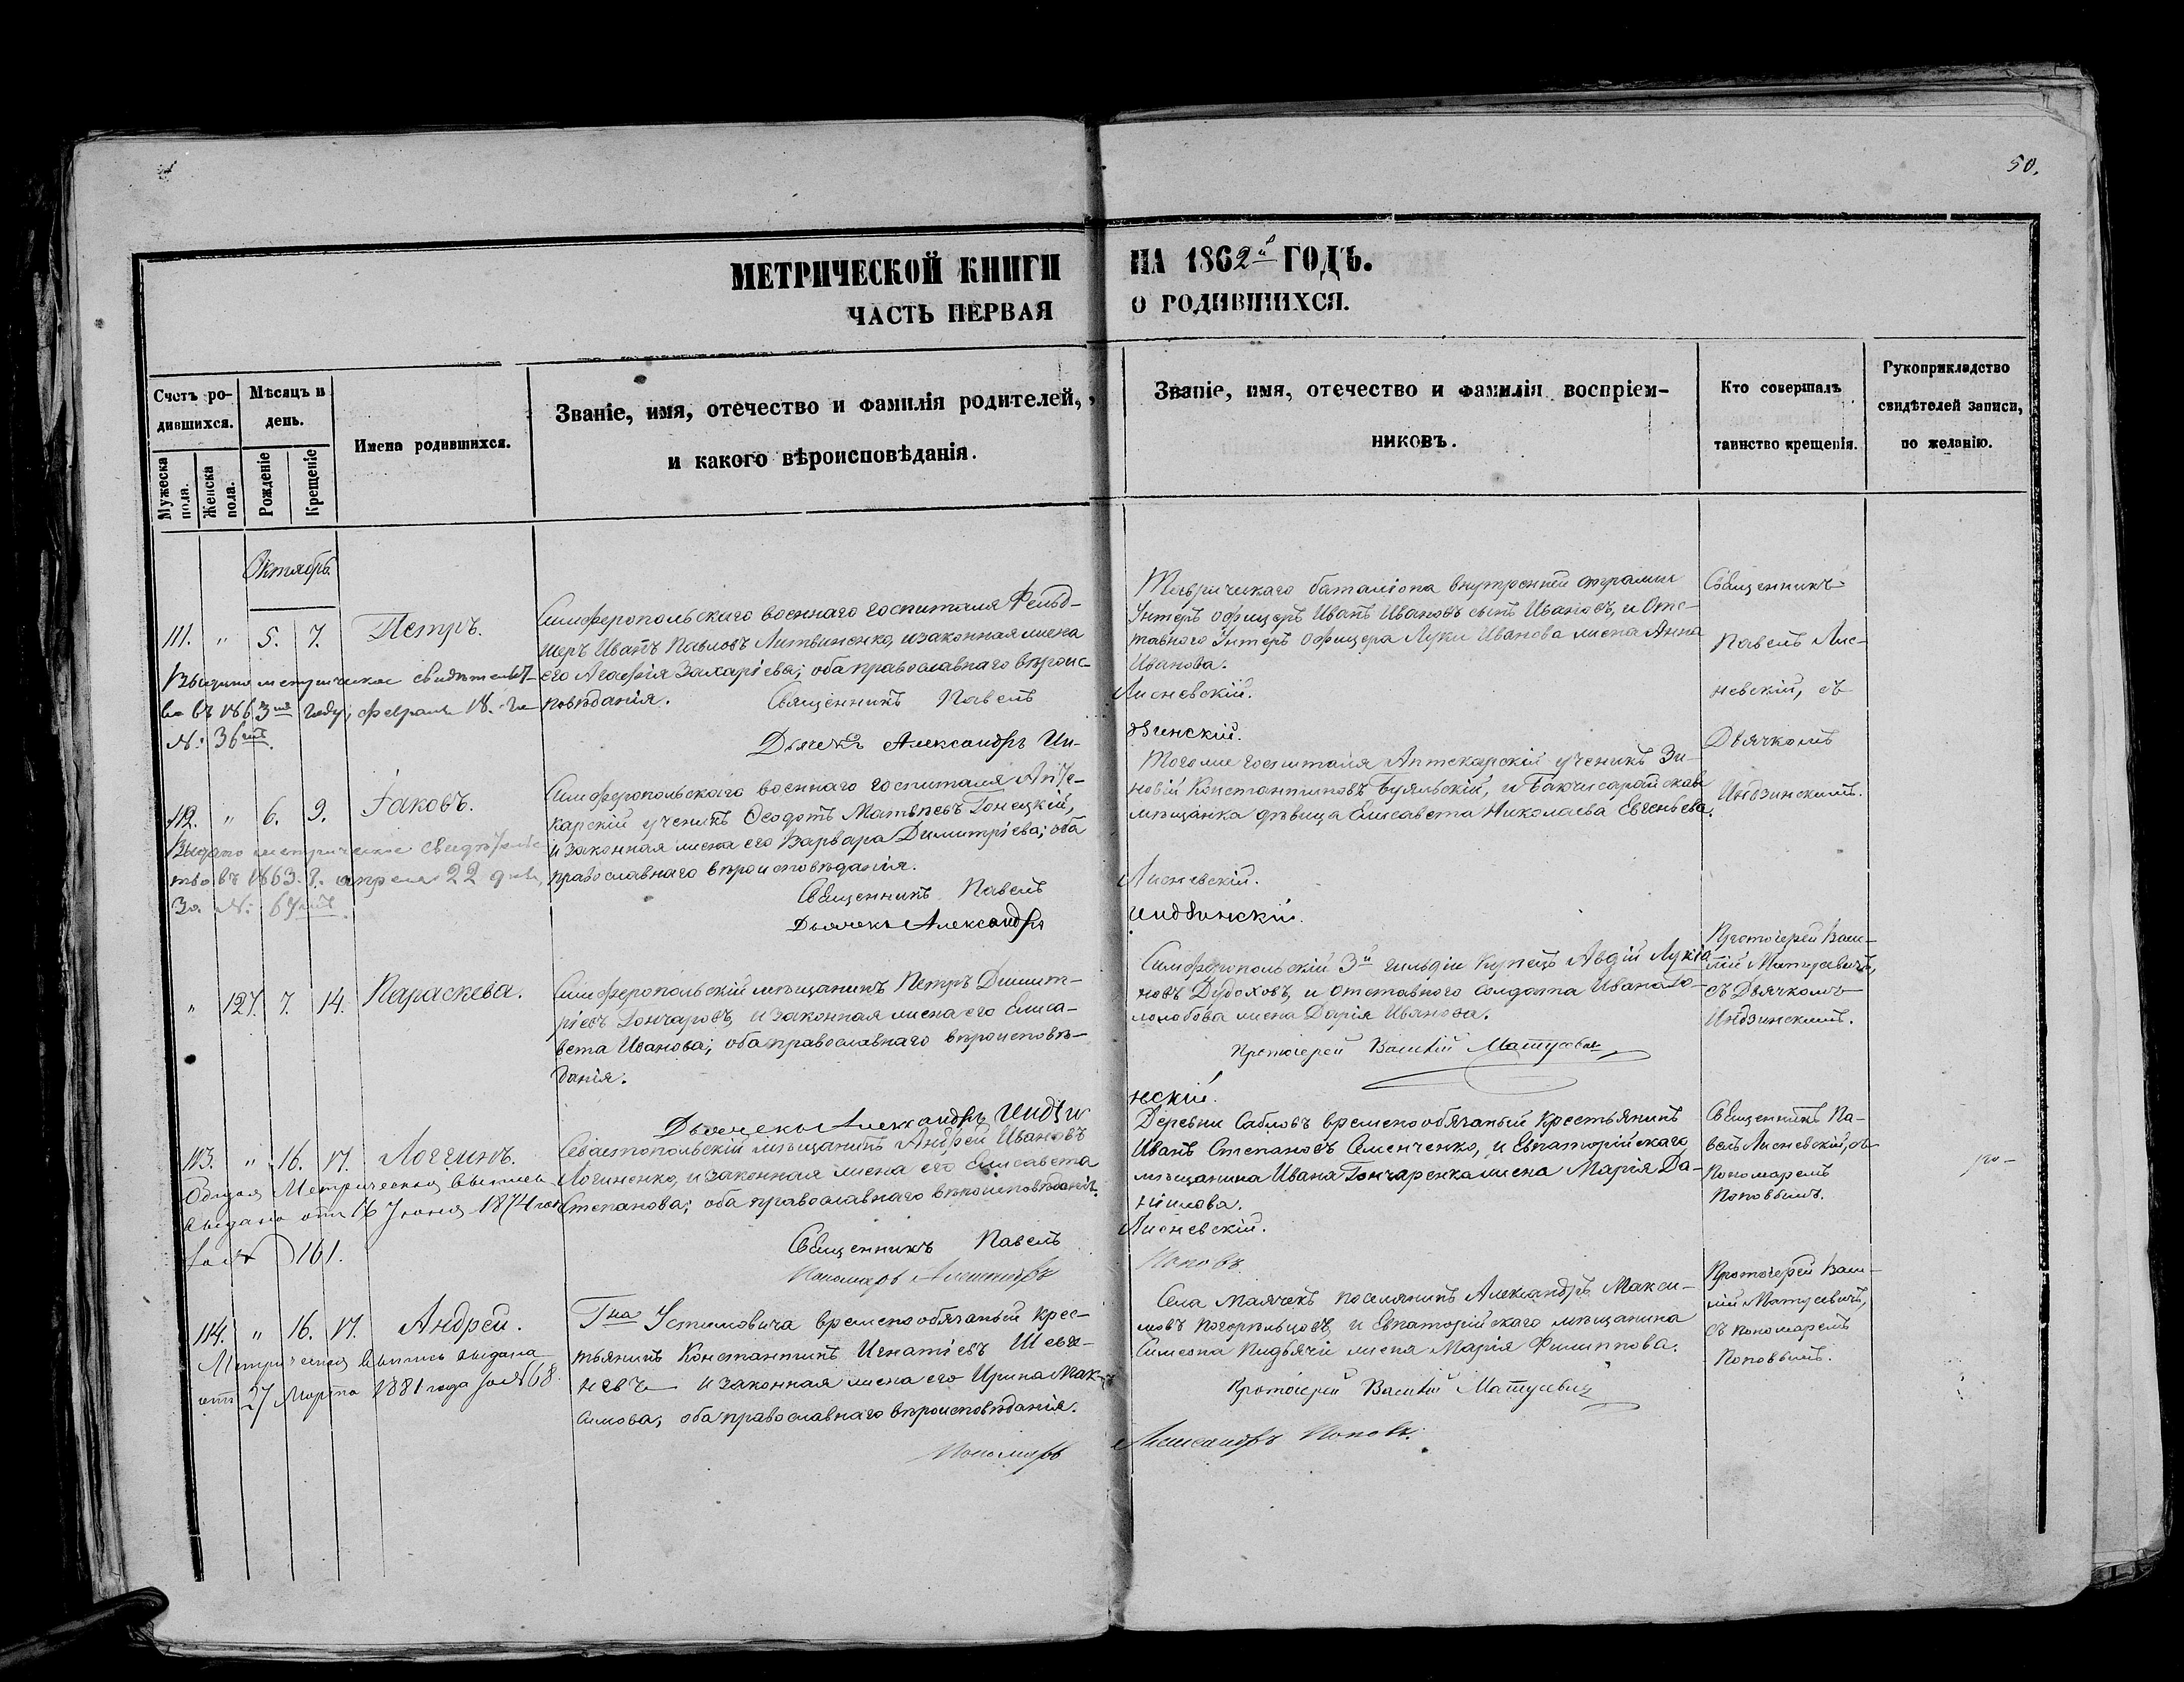 50.
МЕТРИЧЕСКОЙ КНИГИ НА 1862й ГОДЪ.
ЧАСТЬ ПЕРВАЯ О РОДИВШИХСЯ.
Счетъ ро-
дившихся.
Мужеска
пола.
Женска
пола.
Мѣсяцъ и
день.
Рожденіе
Крещеніе
Имена родившихся.
Званіе, имя, отечество и фамилія родителей,
и какого вѣроисповѣданія.
Званіе, имя, отечество и фамилія воспріем-
никовъ.
Кто совершалъ
таинство крещенія.
Рукоприкладство
свидѣтелей записи,
по желанію.
Октябрь.
111. " 5. 7. Петръ.
Симферопольскаго военнаго госпиталя Фельд-
шеръ Иванъ Павловъ Литвиненко, и законная жена
его Агафія Захаріева; оба православнаго вѣроис-
повѣданія.
Священникъ Павелъ Лисневскій.
Дьячекъ Александръ Ин-
дзинскій.
Таврическаго баталіона внутренней стражи
Унтеръ офицеръ Иванъ Ивановъ сынъ Ивановъ, и Отс-
тавного Унтеръ офицера Луки Иванова жена Анна
Иванова.
Священникъ
Павелъ Лис-
невскій, съ
Дьячкомъ
Индзинскимъ.
Выдано метрическое свидѣтельст-
во въ 1863мъ году, февраля 18. за
№: 36
112. " 6. 9. Іаковъ.
Симферопольскаго военнаго госпиталя Апте-
карскій ученикъ Ѳеодотъ Матвѣевъ Гонецкій,
и законная жена его Варвара Димитріева; оба
православнаго вѣроисповѣданія.
Священникъ Павелъ Лисневскій.
Дьячекъ Александръ Индзинскій.
Тогоже госпиталя Аптекарскій ученикъ Зи-
новій Константиновъ Буяльскій, и Бахчисарайская
мѣщанка дѣвица Елисавета Николаева Евгеньева.
Выдано метрическое свидѣтельс-
тво въ 1863. г. апреля 22 дня,
За №: 67
" 127. 7. 14. Параскева.
Симферопольскій мѣщанинъ Петръ Димит-
ріевъ Гончаровъ, и законная жена его Елиса-
вета Иванова; оба православнаго вѣроисповѣ-
данія.
Дьячекъ Александръ Индзи
нскій.
Симферопольскій 3й гильдіи Купецъ Авдій Лукіа
новъ Дудоховъ, и отставного солдата Ивана Го-
лолобова жена Дарія Иванова.
Протоіерей Василій Матусевичъ
Протоіерей Васи-
лій Матусевичъ,
съ Дьячкомъ
Индзинскимъ.
113. " 16. 17. Логгинъ.
Севастопольскій мѣщанинъ Андрей Ивановъ
Логиненко, и законная жена его Елисавета
Степанова; оба православнаго вѣроисповѣданія.
Священникъ Павелъ Лисневскій.
Пономарь Александръ Поповъ
Деревни Сабловъ временнообязаный крестьянинъ
Иванъ Степановъ Семенченко, и Евпаторійскаго
мѣщанина Ивана Гончаренка жена Марія Да-
ніилова.
Священникъ Па-
велъ Лисневскій, съ
Пономаремъ
Поповымъ.
Метрическая выпись
выдано отъ 16 Іюня 1874 года
за № 161.
114. " 16. 17. Андрей.
Гна Устимовича временообязаный крес-
тьянинъ Константинъ Игнатіевъ Шев-
невъ и законная жена его Ирина Мак-
симова, оба православнаго вѣроисповѣданія.
Пономарь Александръ Поповъ.
Села Маячекъ поселянинъ Александръ Макси-
мовъ Погорѣльцовъ, и Евпаторійскаго мѣщанина
Симеона Пидвячи жена Марія Филиппова.
Протоіерей Василій Матусевичъ
Протоіерей Васи-
лій Матусевичъ,
съ пономаремъ
Поповымъ.
Метрическая выпись выдана
отъ 27 Марта 1881 года за № 68